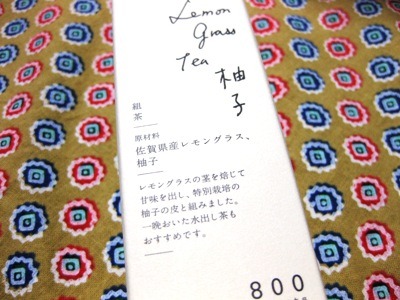 Lemon
grass
Tea
柚子
組
茶
原材料
佐賀県産レモングラス、
柚子
レモングラスの茎を焙じて
甘味を出し、特別栽培の
柚子の皮と組みました。
一晩おいた水出し茶も
おすすめです。
800